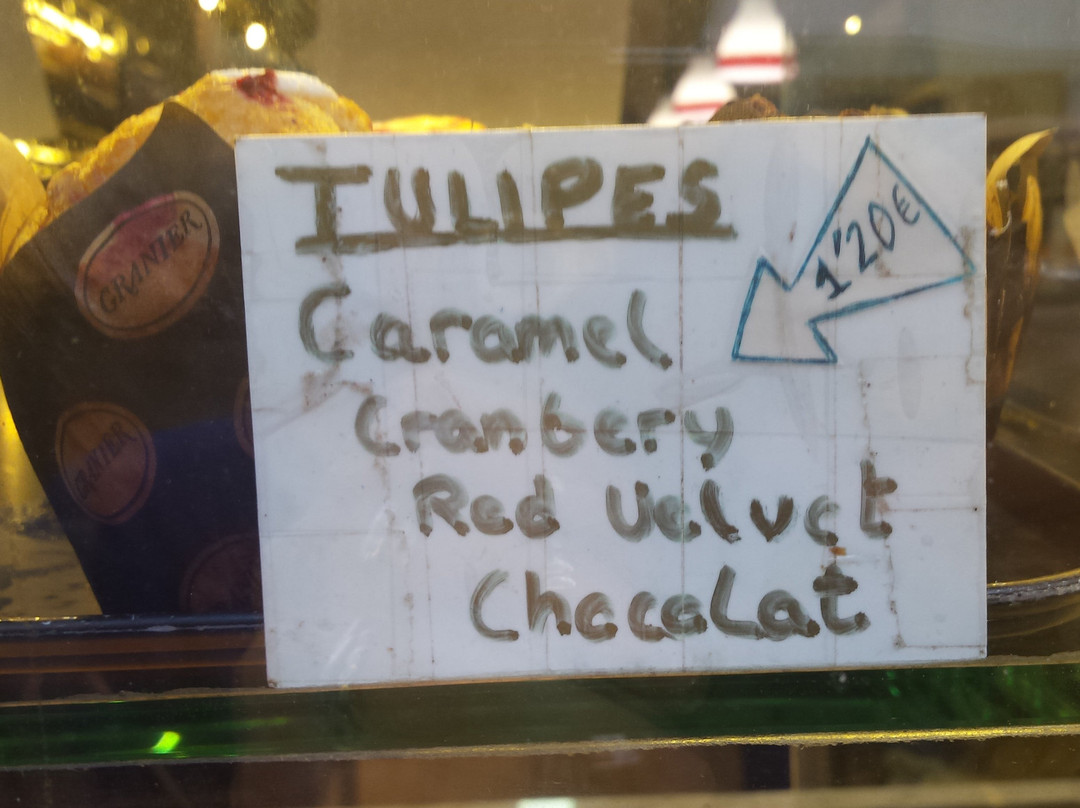 TULIPES
1'20€
Caramel
Cranbery
Red Velvet
Chocolat
GRANIER
GRANIER